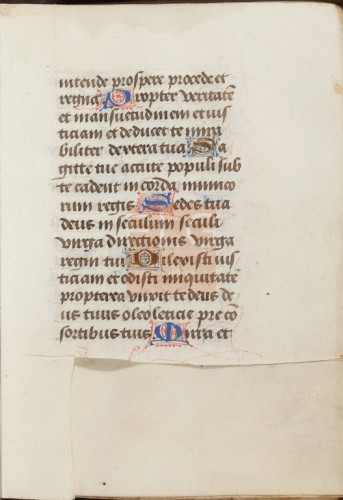 intende prospere procede et
regna Propter veritatē
et mansuetudinem et ius
ticiam et deducet te mira
biliter dextera tua Sa
gitte tue accute populi sub
te cadent in corda inimico
rum regis Sedes tua
deus in seculum seculi
virga directionis virga
regni tui Dilexisti ius
ticiam et odisti iniquitatē
propterea unxit te deus de
us tuus oleo leticie pre cō
sortibus tuis Mirra et